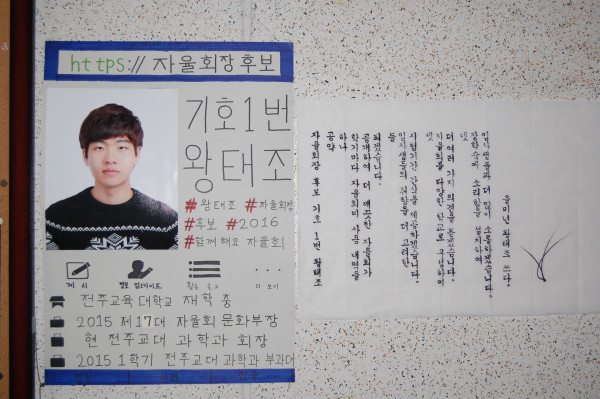 https:// 자율회장후보
기호1번
왕태조
#왕태조 #자율회장
#후보 #2016
#함께해요 자율회
게시 정보 업데이트 활동 로그 더 보기
전주교육대학교 재학 중
2015 제17대 자율회 문화부장
현 전주교대 과학과 회장
2015 1학기 전주교대 과학과 부과대
자율회장 후보 기호 1번 왕태조
공약
하나
학기마다 자율회비 사용 내역을
공개하여 더 깨끗한 자율회가
되겠습니다.
둘
입사생들의 취향을 더 고려한
시험기간 간식을 제공하겠습니다.
셋
자율회를 다양한 구성하여
더 여러 가지 의견을 듣겠습니다.
넷
장학숙에 소리함을 설치하여
입사생들과 더 많이 소통하겠습니다.
을미년 왕태조 쓰다.